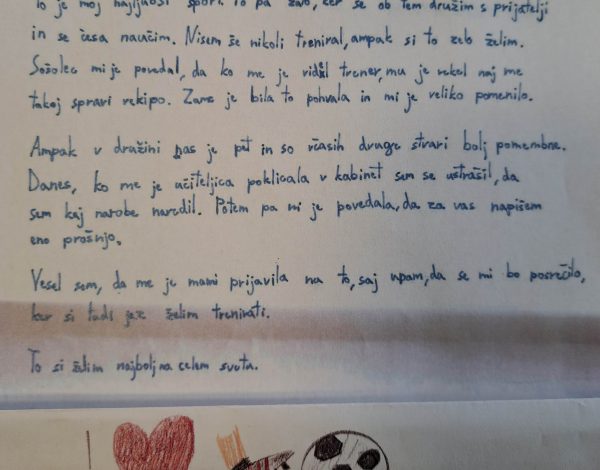 To je moj najljubši šport. To pa zato, ker se ob tem družim s prijatelji
in se česa naučim. Nisem še nikoli treniral, ampak si to zelo želim.
Sošolec mi je povedal, da ko me je videl trener, mu je rekel naj me
takoj spravi v ekipo. Zame je bila to pohvala in mi je veliko pomenilo.
Ampak v družini nas je pet in so včasih druge stvari bolj pomembne.
Danes, ko me je učiteljica poklicala v kabinet sem se ustrašil, da
sem kaj narobe naredil. Potem pa mi je povedala, da za vas napišem
eno prošnjo.
Vesel sem, da me je mami prijavila na to, saj upam, da se mi bo posrečilo,
ker si tudi jaz želim trenirati.
To si želim najbolj na celem svetu.